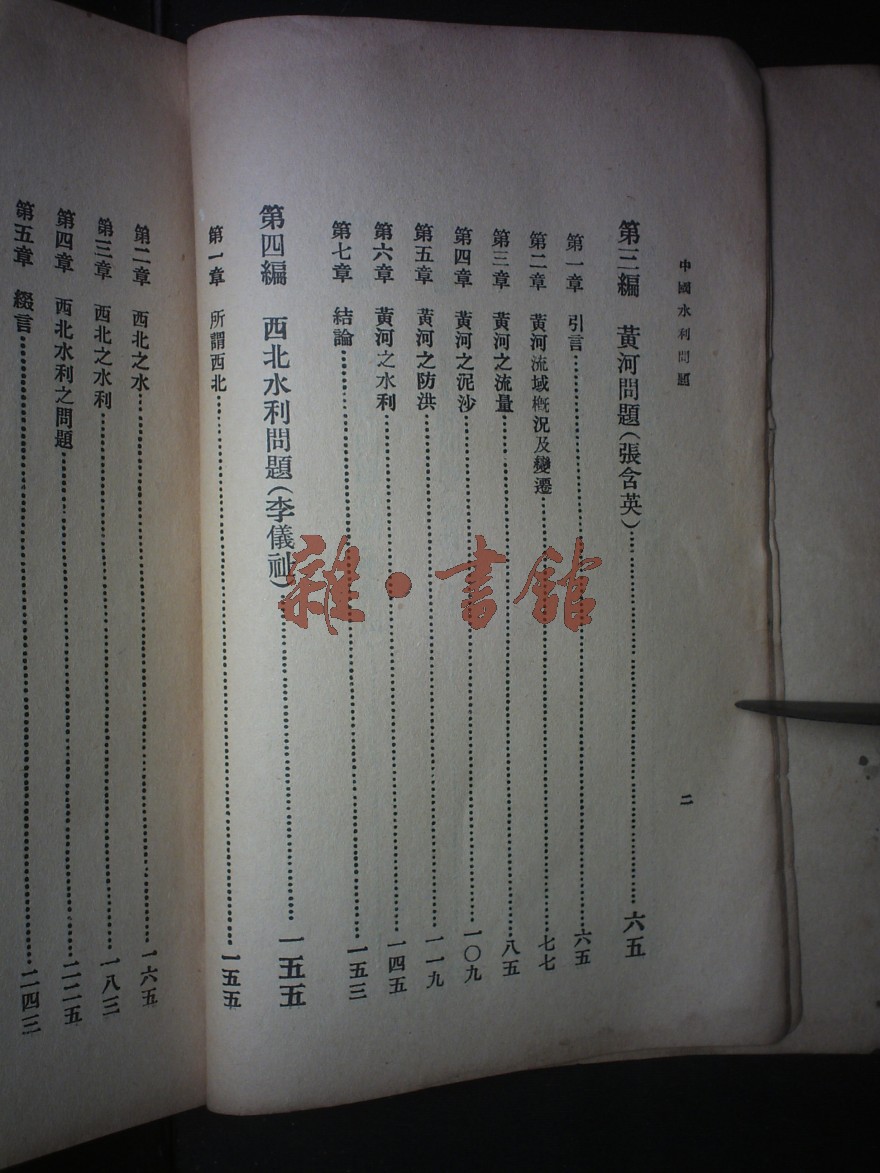 中國水利問題
二
第三編　黃河問題（張含英）……六五
第一章　引言……六五
第二章　黃河流域概況及變遷……七七
第三章　黃河之流量……八五
第四章　黃河之泥沙……一〇九
第五章　黃河之防洪……一一九
第六章　黃河之水利……一四五
第七章　結論……一五三
第四編　西北水利問題（李儀祉）……一五五
第一章　所謂西北……一五五
第二章　西北之水……一六五
第三章　西北之水利……一八三
第四章　西北水利之問題……二二五
第五章　綴言……二四三
雜·書館